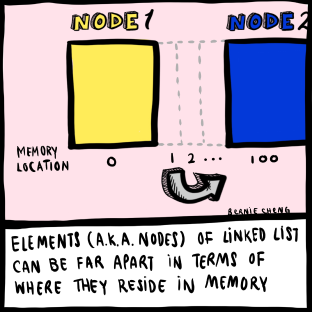 NODE 1 NODE 2
MEMORY
LOCATION
0 1 2 ... 100
BERNIE CHENG
ELEMENTS (A.K.A. NODES) OF LINKED LIST
CAN BE FAR APART IN TERMS OF
WHERE THEY RESIDE IN MEMORY